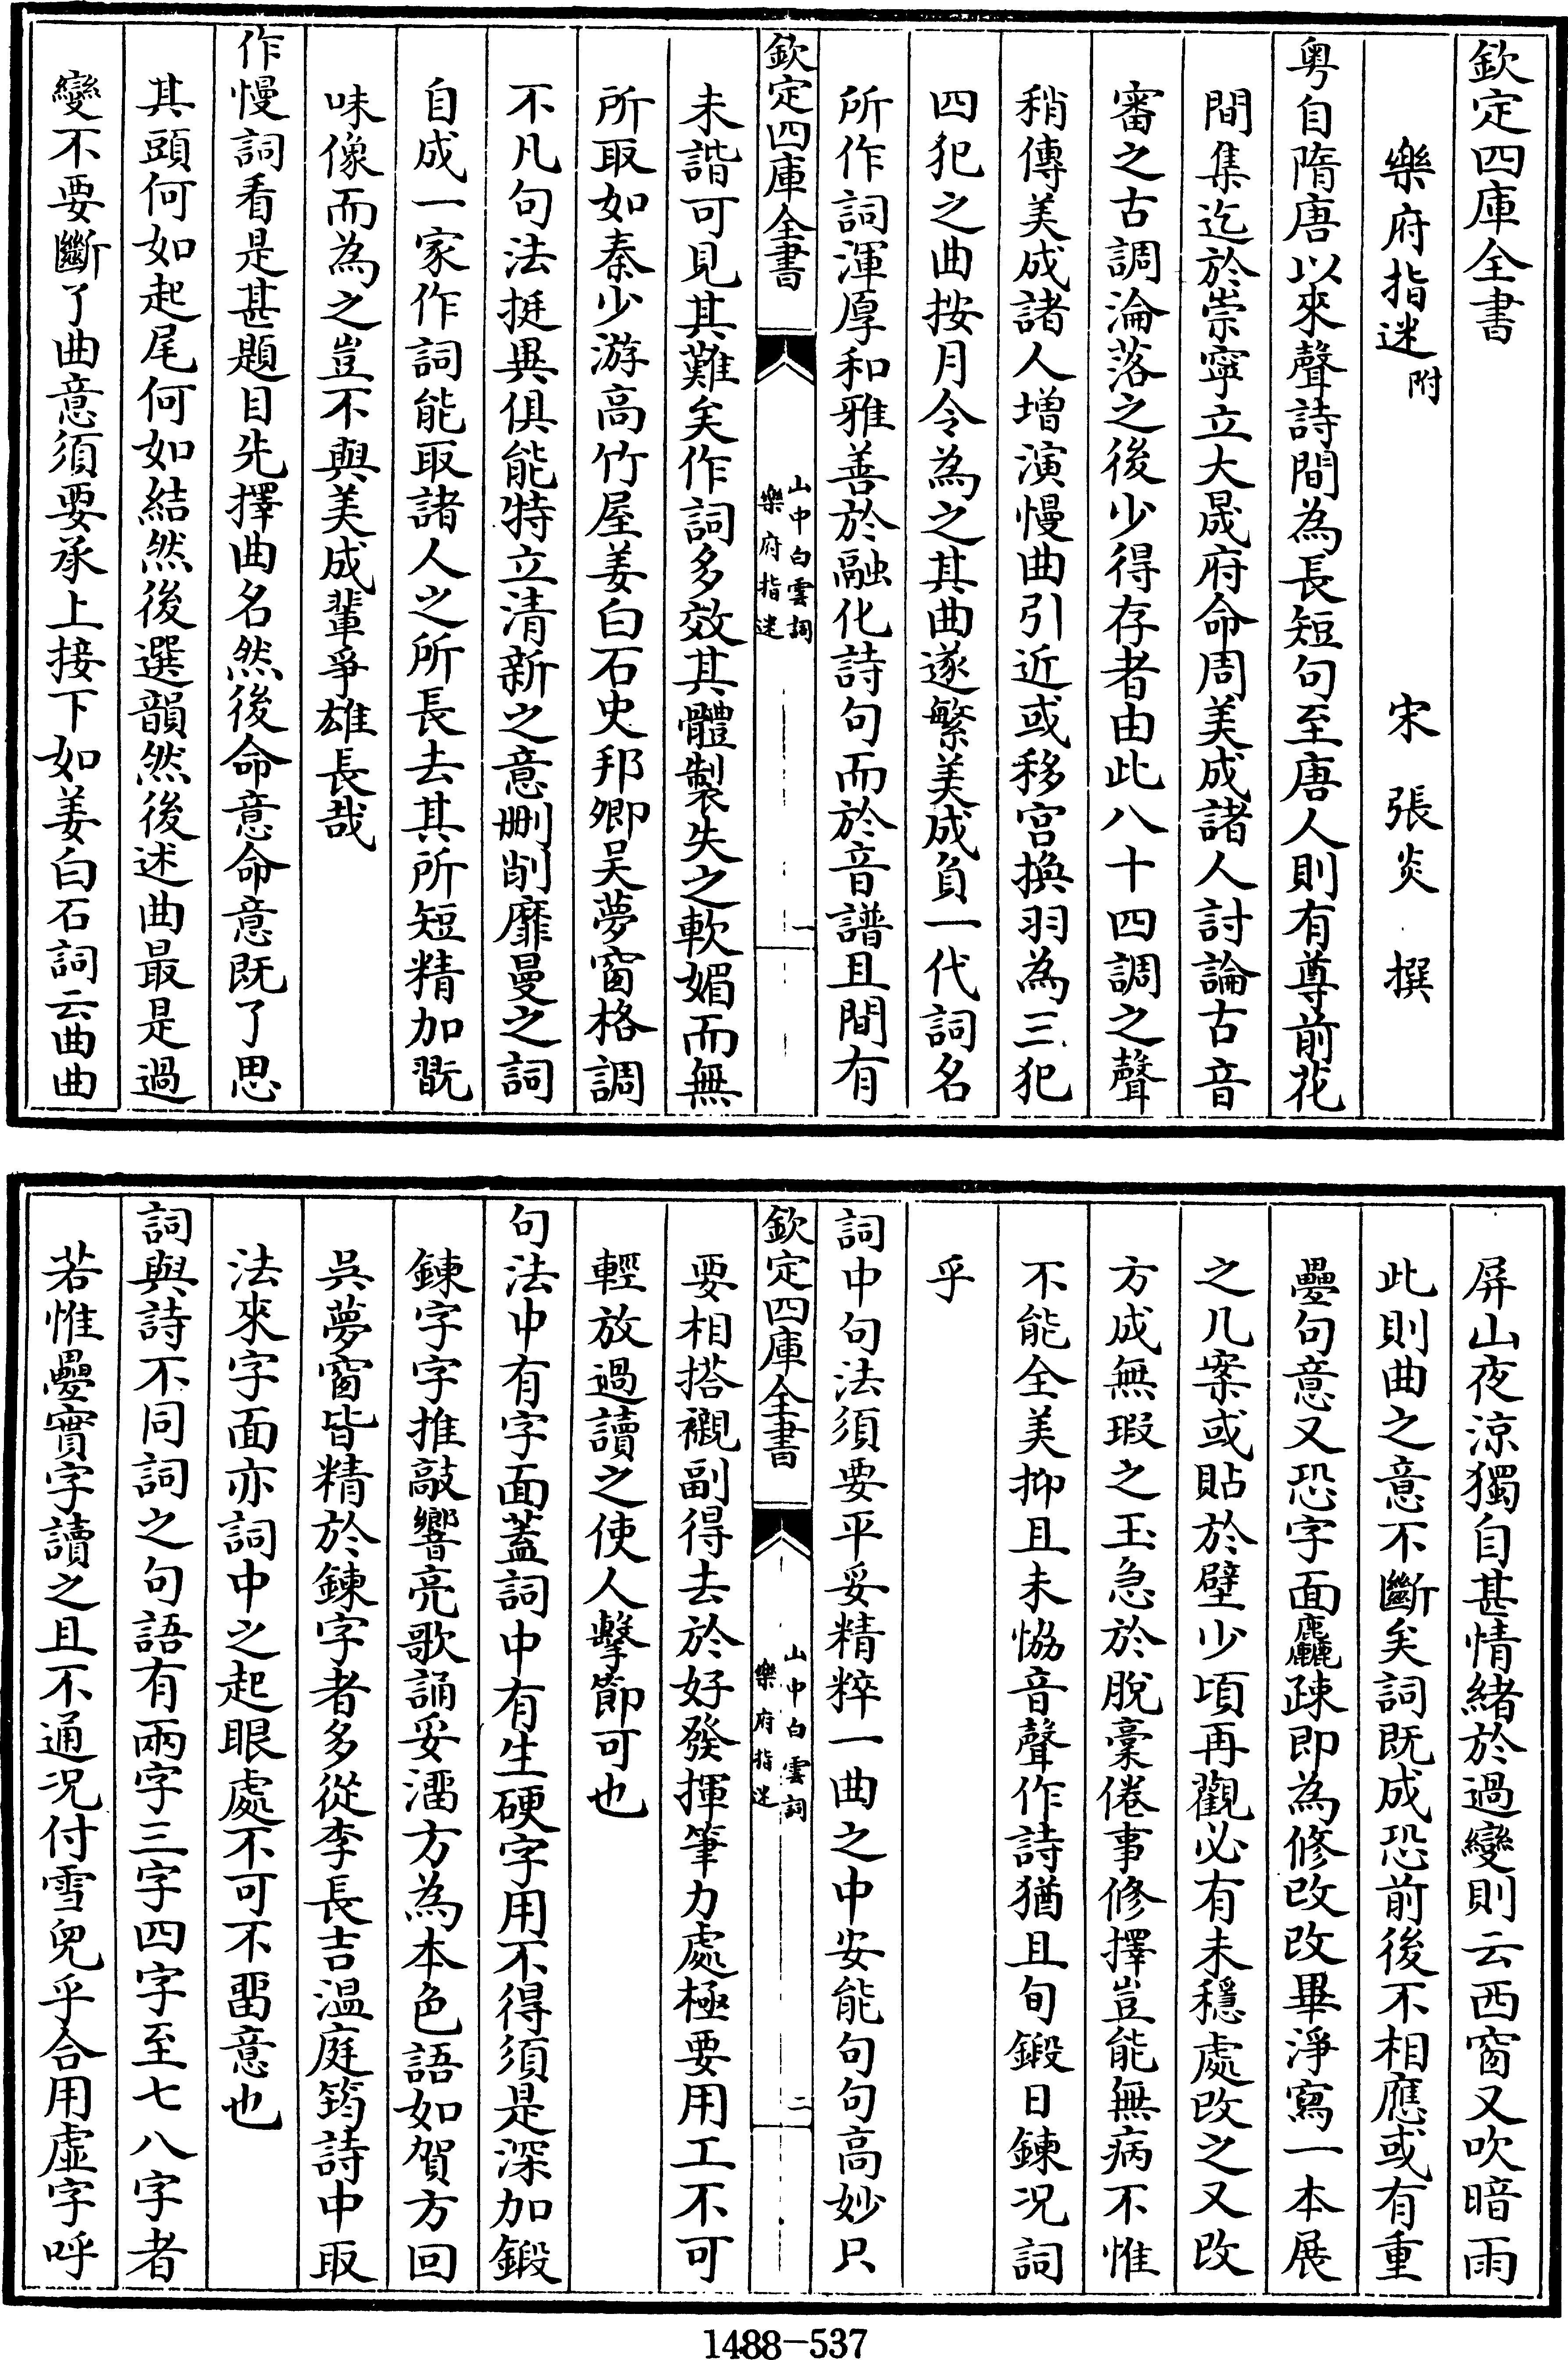 欽定四庫全書
樂府指迷附
宋 張炎 撰
粤自隋唐以來聲詩間為長短句至唐人則有尊前花
間集迄於崇寧立大晟府命周美成諸人討論古音
審之古調淪落之後少得存者由此八十四調之聲
稍傳美成諸人增演慢曲引近或移宫換羽為三犯
四犯之曲按月令為之其曲遂繁美成負一代詞名
所作詞渾厚和雅善於融化詩句而於音譜且間有
欽定四庫全書
山中白雲詞
樂府指迷
一
未諧可見其難矣作詞多效其體製失之軟媚而無
所取如秦少游高竹屋姜白石史邦卿吴夢窗格調
不凡句法挺異俱能特立清新之意刪削靡曼之詞
自成一家作詞能取諸人之所長去其所短精加翫
味像而為之豈不與美成輩爭雄長哉
作慢詞看是甚題目先擇曲名然後命意命意既了思
其頭何如起尾何如結然後選韻然後述曲最是過
變不要斷了曲意須要承上接下如姜白石詞云曲曲
屏山夜涼獨自甚情緒於過變則云西窗又吹暗雨
此則曲之意不斷矣詞既成恐前後不相應或有重
疊句意又恐字面麤疎即為修改改畢淨寫一本展
之几案或貼於壁少頃再觀必有未穩處改之又改
方成無瑕之玉急於脫稾倦事修擇豈能無病不惟
不能全美抑且未恊音聲作詩猶且旬鍛日鍊况詞
乎
詞中句法須要平妥精粹一曲之中安能句句高妙只
欽定四庫全書
山中白雲詞
樂府指迷
二
要相搭襯副得去於好發揮筆力處極要用工不可
輕放過讀之使人擊節可也
句法中有字面蓋詞中有生硬字用不得須是深加鍛
鍊字字推敲響亮歌誦妥溜方為本色語如賀方回
吳夢窗皆精於鍊字者多從李長吉温庭筠詩中取
法來字面亦詞中之起眼處不可不畱意也
詞與詩不同詞之句語有兩字三字四字至七八字者
若惟疊實字讀之且不通况付雪兒乎合用虛字呼
1488-537